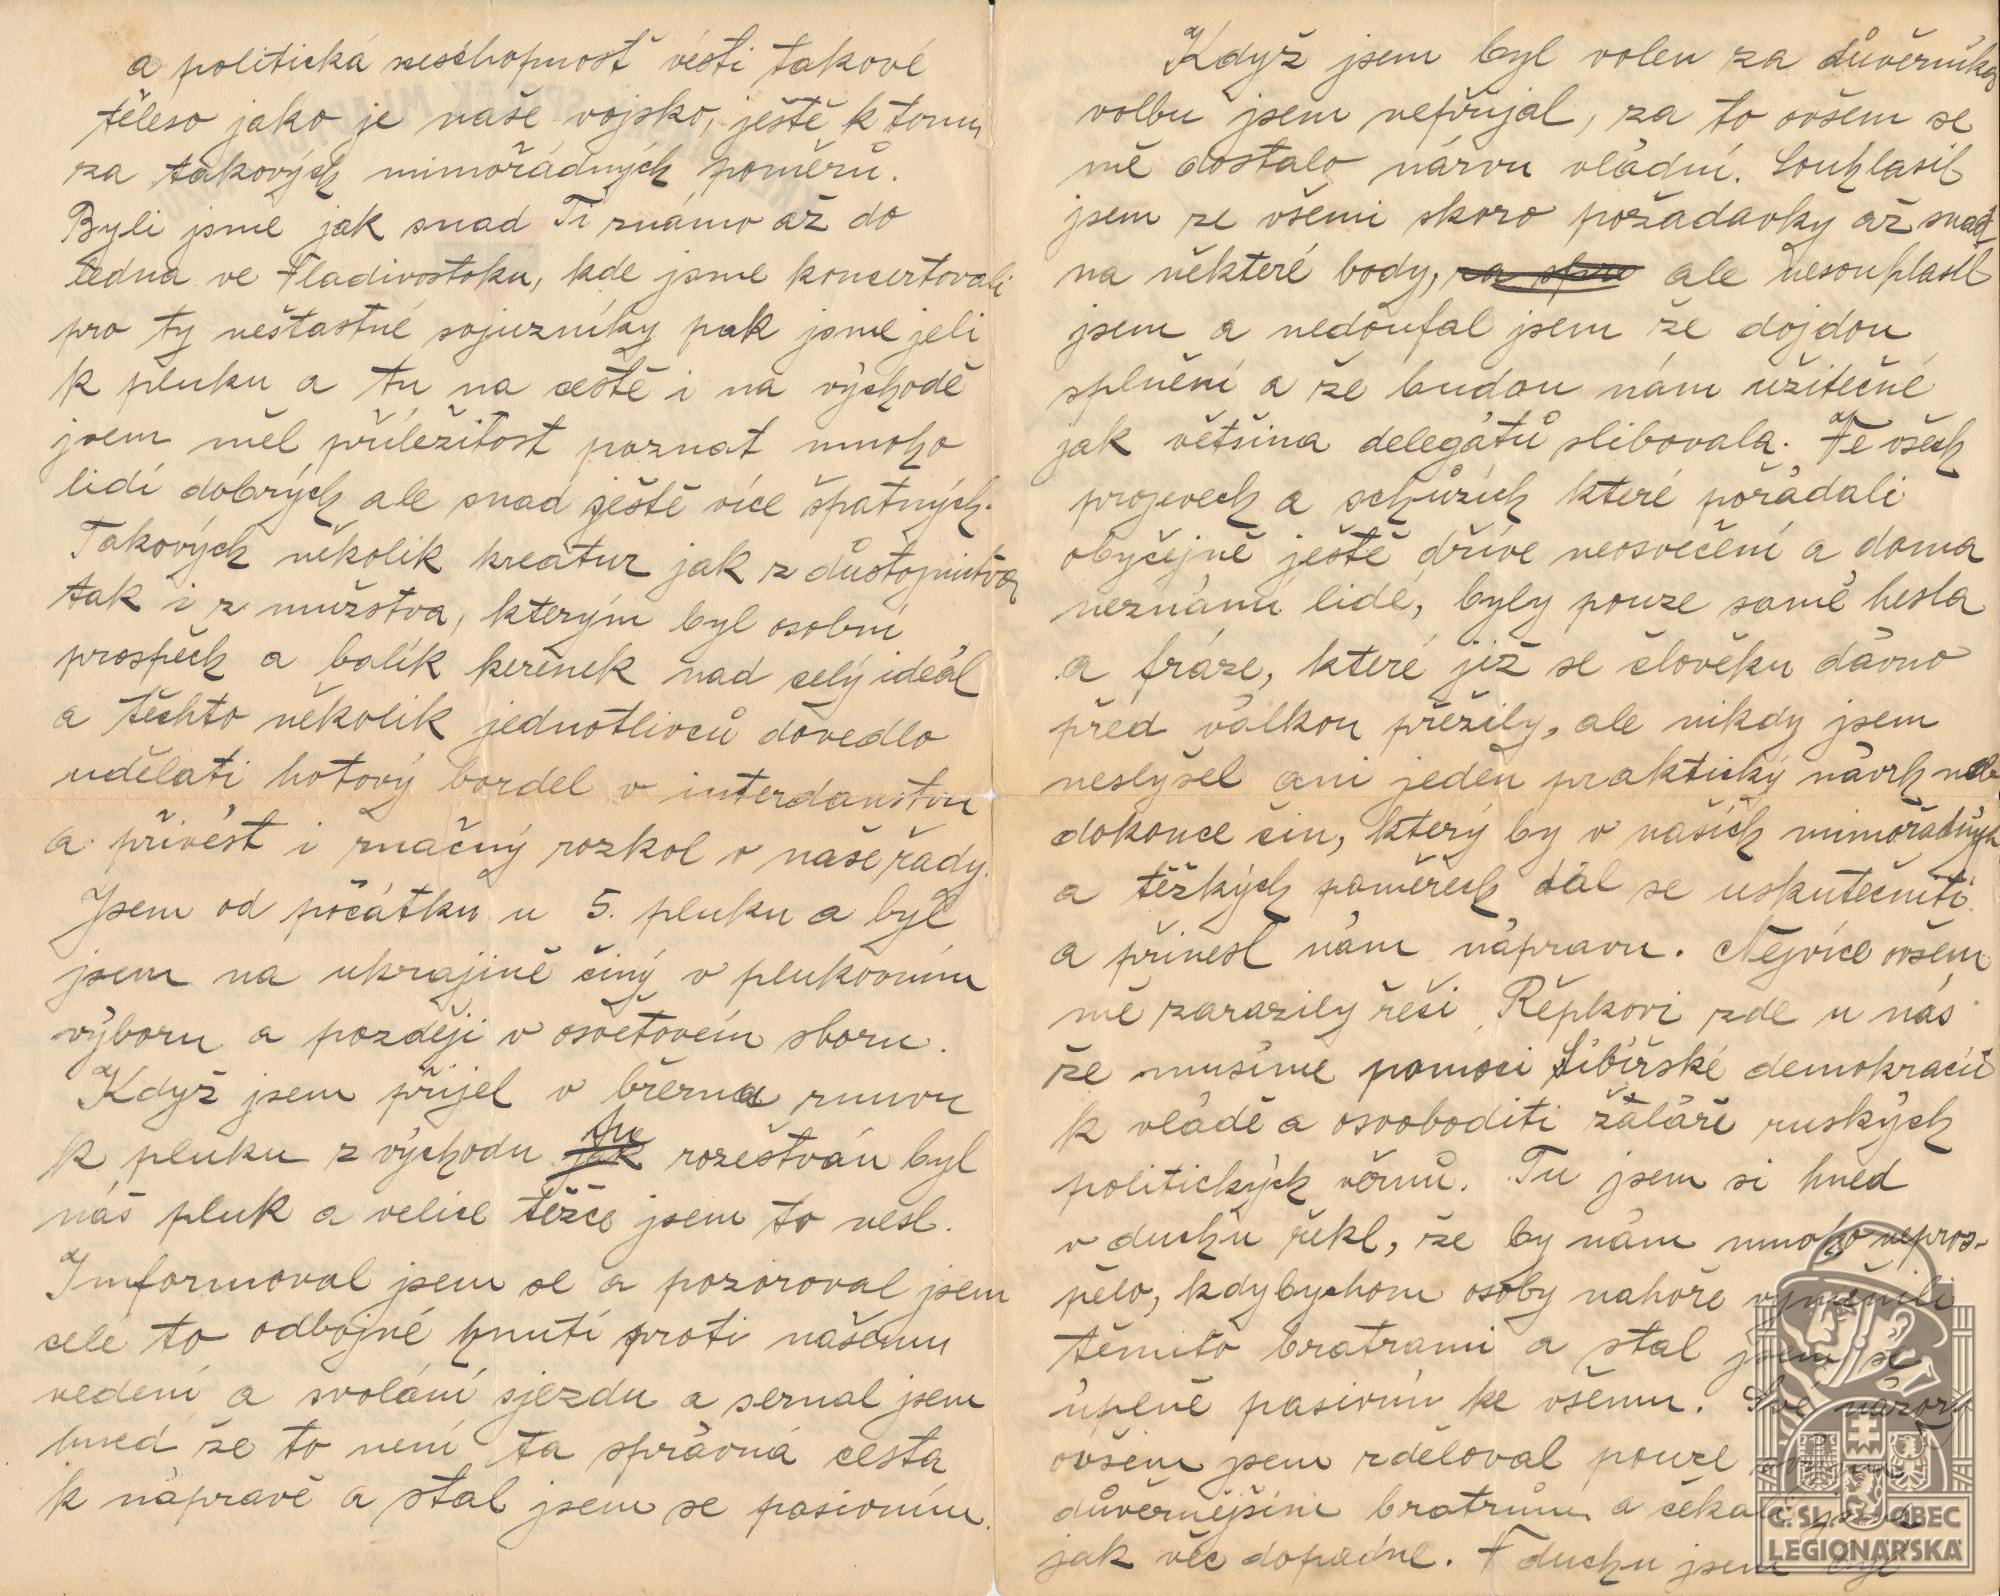 a politická neschopnost vésti takové
těleso jako je naše vojsko, ještě k tomu
za takových mimořádných poměrů.
Byli jsme jak snad Ti známo až do
ledna ve Vladivostoku, kde jsme koncertovali
pro ty nešťastné sojuzníky pak jsme jeli
k pluku a tu na cestě i na východě
jsem měl příležitost poznat mnoho
lidí dobrých ale snad ještě více špatných.
Takových několik kreatur jak z důstojnictva
tak i z mužstva, kterým byl osobní
prospěch a balík kerenek nad celý ideál
a těchto několik jednotlivců dovedlo
udělati hotový bordel v interdanstvu
a přivést i značný rozkol v naše řady.
Jsem od počátku u 5. pluku a byl
jsem na ukrajině činý v plukovním
výboru a později v osvětovém sboru.
Když jsem přijel v březnu znovu
k pluku z východu tu rozeštván byl
náš pluk a velice těžce jsem to nesl.
Imformoval jsem se a pozoroval jsem
celé to odbojné hnutí proti našemu
vedení a svolání sjezdu a seznal jsem
hned že to není ta správná cesta
k nápravě a stal jsem se pasivním.
Když jsem byl volen za důvěrníka
volbu jsem nepřijal, za to ovšem se
mě dostalo názvu vládní. Souhlasil
jsem ze všemi skoro požadavky až snad
na některé body, ale nesouhlasil
jsem a nedoufal jsem že dojdou
splnění a že budou nám užitečné
jak většina delegátů slibovala. Ve všech
projevech a schůzích které pořádali
obyčejně ještě dříve neosvěčení a doma
neznámí lidé, byly pouze samé hesla
a fráze, které již se člověku dávno
před válkou přežily, ale nikdy jsem
neslyšel ani jeden praktický návrh neb
dokonce čin, který by v našich mimořádných
a těžkých poměrech dál se uskutečniti
a přinesl nám nápravu. Nejvíce ovšem
mě zarazily řeči Řepkovi zde u nás
že musíme pomoci Sibiřské demokracii
k vládě a osvoboditi žaláře ruských
politických věznů. Tu jsem si hned
v duchu řekl, že by nám mnoho nepros-
pělo, kdybychom osoby nahoře vyměnili
těmito bratrami a stal jsem se
úplně pasivním ke všemu. Své názory
ovšem jsem zděloval pouze
důvěrnějšími bratrům a čekali jsme
jak věc dopadne. V duchu jsem byl
Č. SL. OBEC
LEGIONÁŘSKÁ